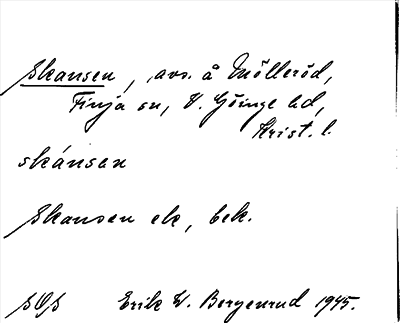 Skansen, avs. å Mölleröd,
Finja sn, V. Göinge hd,
Krist. l.
skánsan
Skansen ek, bek.
SOS Erik W. Bergenrud 1945.